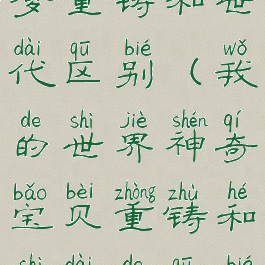 重铸和世
dài qū bié wǒ
代区别（我
de shì jiè shén qí
的世界神奇
bǎo bèi zhòng zhù hé
宝贝重铸和
shì dài de qū bié